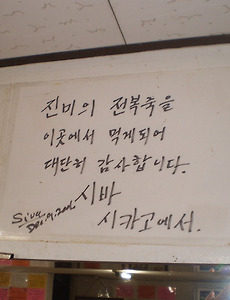 진미의 전복죽을
이곳에서 먹게되어
대단히 감사합니다.
시바
Siva
시카고에서.